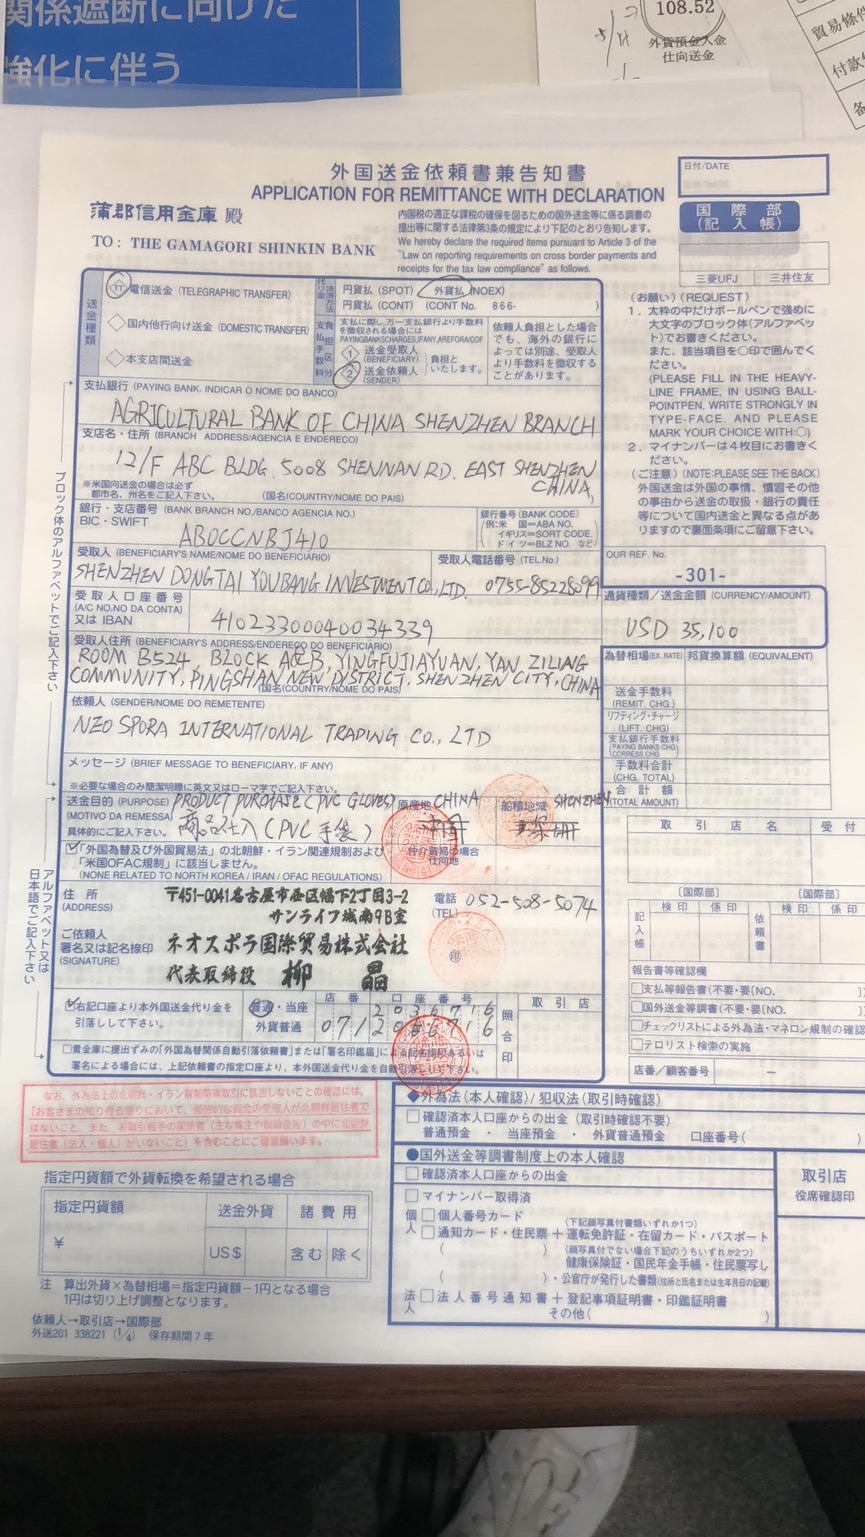 関係遮断に向けた
強化に伴う
108.52
外貨預金入金
仕向送金
貿易条件
付款
外国送金依頼書兼告知書
APPLICATION FOR REMITTANCE WITH DECLARATION
日付/DATE
蒲郡信用金庫 殿
TO: THE GAMAGORI SHINKIN BANK
内国税の適正な課税の確保を図るための国外送金等に係る調書の
提出等に関する法律第3条の規定により下記のとおり告知します。
We hereby declare the required items pursuant to Article 3 of the
"Law on reporting requirements on cross border payments and
receipts for the tax law compliance" as follows.
国際部
(記入帳)
三菱UFJ 三井住友
送金種類
電信送金 (TELEGRAPHIC TRANSFER)
国内他行向け送金 (DOMESTIC TRANSFER)
本支店間送金
円貨払 (SPOT) 外貨払 (NOEX)
円貨払 (CONT) (CONT No. 866- )
支払に際し、万一支払銀行より手数料
を徴収される場合には
PAYING BANKS CHARGES, IF ANY, ARE FOR A/C OF
1 送金受取人
(BENEFICIARY)
2 送金依頼人
(SENDER)
負担と
いたします。
依頼人負担とした場合
でも、海外の銀行に
よっては別途、受取人
より手数料を徴収する
ことがあります。
(お願い) (REQUEST)
1. 太枠の中だけボールペンで強めに
大文字のブロック体(アルファベッ
ト)でお書きください。
また、該当項目を〇印で囲んでく
ださい。
(PLEASE FILL IN THE HEAVY-
LINE FRAME, IN USING BALL-
POINTPEN, WRITE STRONGLY IN
TYPE-FACE. AND PLEASE
MARK YOUR CHOICE WITH:〇)
2. マイナンバーは4枚目にお書きく
ださい。
(ご注意) (NOTE:PLEASE SEE THE BACK)
外国送金は外国の事情、慣習その他
の事由から送金の取扱・銀行の責任
等について国内送金と異なる点があ
りますので裏面条項にご留意下さい。
支払銀行 (PAYING BANK. INDICAR O NOME DO BANCO)
AGRICULTURAL BANK OF CHINA SHENZHEN BRANCH
支店名・住所 (BRANCH ADDRESS/AGENCIA E ENDERECO)
12/F ABC BLDG. 5008 SHENNAN RD. EAST SHENZHEN
CHINA,
※米国向送金の場合は必ず
都市名、州名をご記入下さい。 (国名(COUNTRY/NOME DO PAIS)
銀行・支店番号 (BANK BRANCH NO./BANCO AGENCIA NO.)
BIC・SWIFT
ABOCCNBJ410
銀行番号 (BANK CODE)
(例:米 国=ABA NO.
イギリス=SORT CODE.
ドイツ=BLZ NO. など)
受取人 (BENEFICIARY'S NAME/NOME DO BENEFICIARIO) 受取人電話番号 (TEL.No.)
SHENZHEN DONGTAI YOUBANG INVESTMENT CO., LTD. 0755-85228099
OUR REF. No.
-301-
受取人口座番号
(A/C NO.NO DA CONTA)
又は IBAN
41023300040034339
通貨種類/送金金額 (CURRENCY/AMOUNT)
USD 35,100
受取人住所 (BENEFICIARY'S ADDRESS/ENDERECO DO BENEFICIARIO)
ROOM B524, BLOCK A&B, YINGFUJIAYUAN, YAN, ZILING
COMMUNITY, PINGSHAN NEW DISTRICT, SHENZHEN CITY, CHINA
(国名(COUNTRY/NOME DO PAIS)
為替相場(EX. RATE) 邦貨換算額 (EQUIVALENT)
送金手数料
(REMIT. CHG.)
リフティング・チャージ
(LIFT. CHG)
支払銀行手数料
(PAYING BANKS CHG)
(CORRESS. CHG)
手数料合計
(CHG. TOTAL)
合計額
(TOTAL AMOUNT)
依頼人 (SENDER/NOME DE REMETENTE)
NEO SPORA INTERNATIONAL TRADING CO., LTD
メッセージ (BRIEF MESSAGE TO BENEFICIARY, IF ANY)
※必要な場合のみ簡潔明瞭に英文又はローマ字でご記入下さい。
送金目的 (PURPOSE)
(MOTIVO DA REMESSA)
具体的にご記入下さい。
PRODUCT PURCHASE (PVC GLOVES)
商品仕入(PVC手袋)
原産地 CHINA
中国
仲介貿易の場合
仕向地
船積地域 SHENZHEN
深圳
「外国為替及び外国貿易法」の北朝鮮・イラン関連規制および
「米国OFAC規制」に該当しません。
(NONE RELATED TO NORTH KOREA / IRAN / OFAC REGULATIONS)
住所
(ADDRESS)
〒451-0041名古屋市西区幅下2丁目3-2
サンライフ城南9B室
電話
(TEL)
052-508-5074
ご依頼人
署名又は記名捺印
(SIGNATURE)
ネオスポラ国際貿易株式会社
代表取締役 柳 晶
印
右記口座より本外国送金代り金を
引落しして下さい。
店番 口座番号
普通・当座 2036716
外貨普通 071 2036716
照合印
取引店
貴金庫に提出ずみの「外国為替関係自動引落依頼書」または「署名印鑑届」による記名捺印あるいは
署名による場合は、上記依頼書の指定口座より、本外国送金代り金を自動引落しして下さい。
ブロック体のアルファベットでご記入下さい
アルファベット又は日本語でご記入下さい
取引店名 受付
〔国際部〕 〔国際部〕
記入帳 検印 係印
依頼書 検印 係印
報告書等確認欄
支払等報告書(不要・要〔NO. 〕)
国外送金等調書(不要・要〔NO. 〕)
チェックリストによる外為法・マネロン規制の確認
テロリスト検索の実施
店番/顧客番号 -
なお、外為法上の北朝鮮・イラン規制関連取引に該当しないことの確認には、
「お客さまの知り得る限りにおいて、最終的な資金の受取人が北朝鮮居住者で
はないこと、また、お取引相手の関係者(主な株主や取締役等)の中に北朝鮮
居住者(法人・個人)がいないこと」を含むことにご留意願います。
◆外為法(本人確認)/犯収法(取引時確認)
確認済本人口座からの出金(取引時確認不要)
普通預金・当座預金・外貨普通預金 口座番号( )
●国外送金等調書制度上の本人確認
確認済本人口座からの出金
マイナンバー取得済
個人
個人番号カード (下記顔写真付書類いずれか1つ)
通知カード・住民票+運転免許証・在留カード・パスポート
(顔写真付でない場合下記のうちいずれか2つ)
健康保険証・国民年金手帳・住民票写し
・公官庁が発行した書類(住所と氏名または生年月日の記載)
法人
法人番号通知書+登記事項証明書・印鑑証明書
その他( )
取引店
役席確認印
指定円貨額で外貨転換を希望される場合
指定円貨額 送金外貨 諸費用
¥ US$ 含む 除く
注 算出外貨×為替相場=指定円貨額-1円となる場合
1円は切り上げ調整となります。
依頼人→取引店→国際部
外送201 338221 (1/4) 保存期間7年